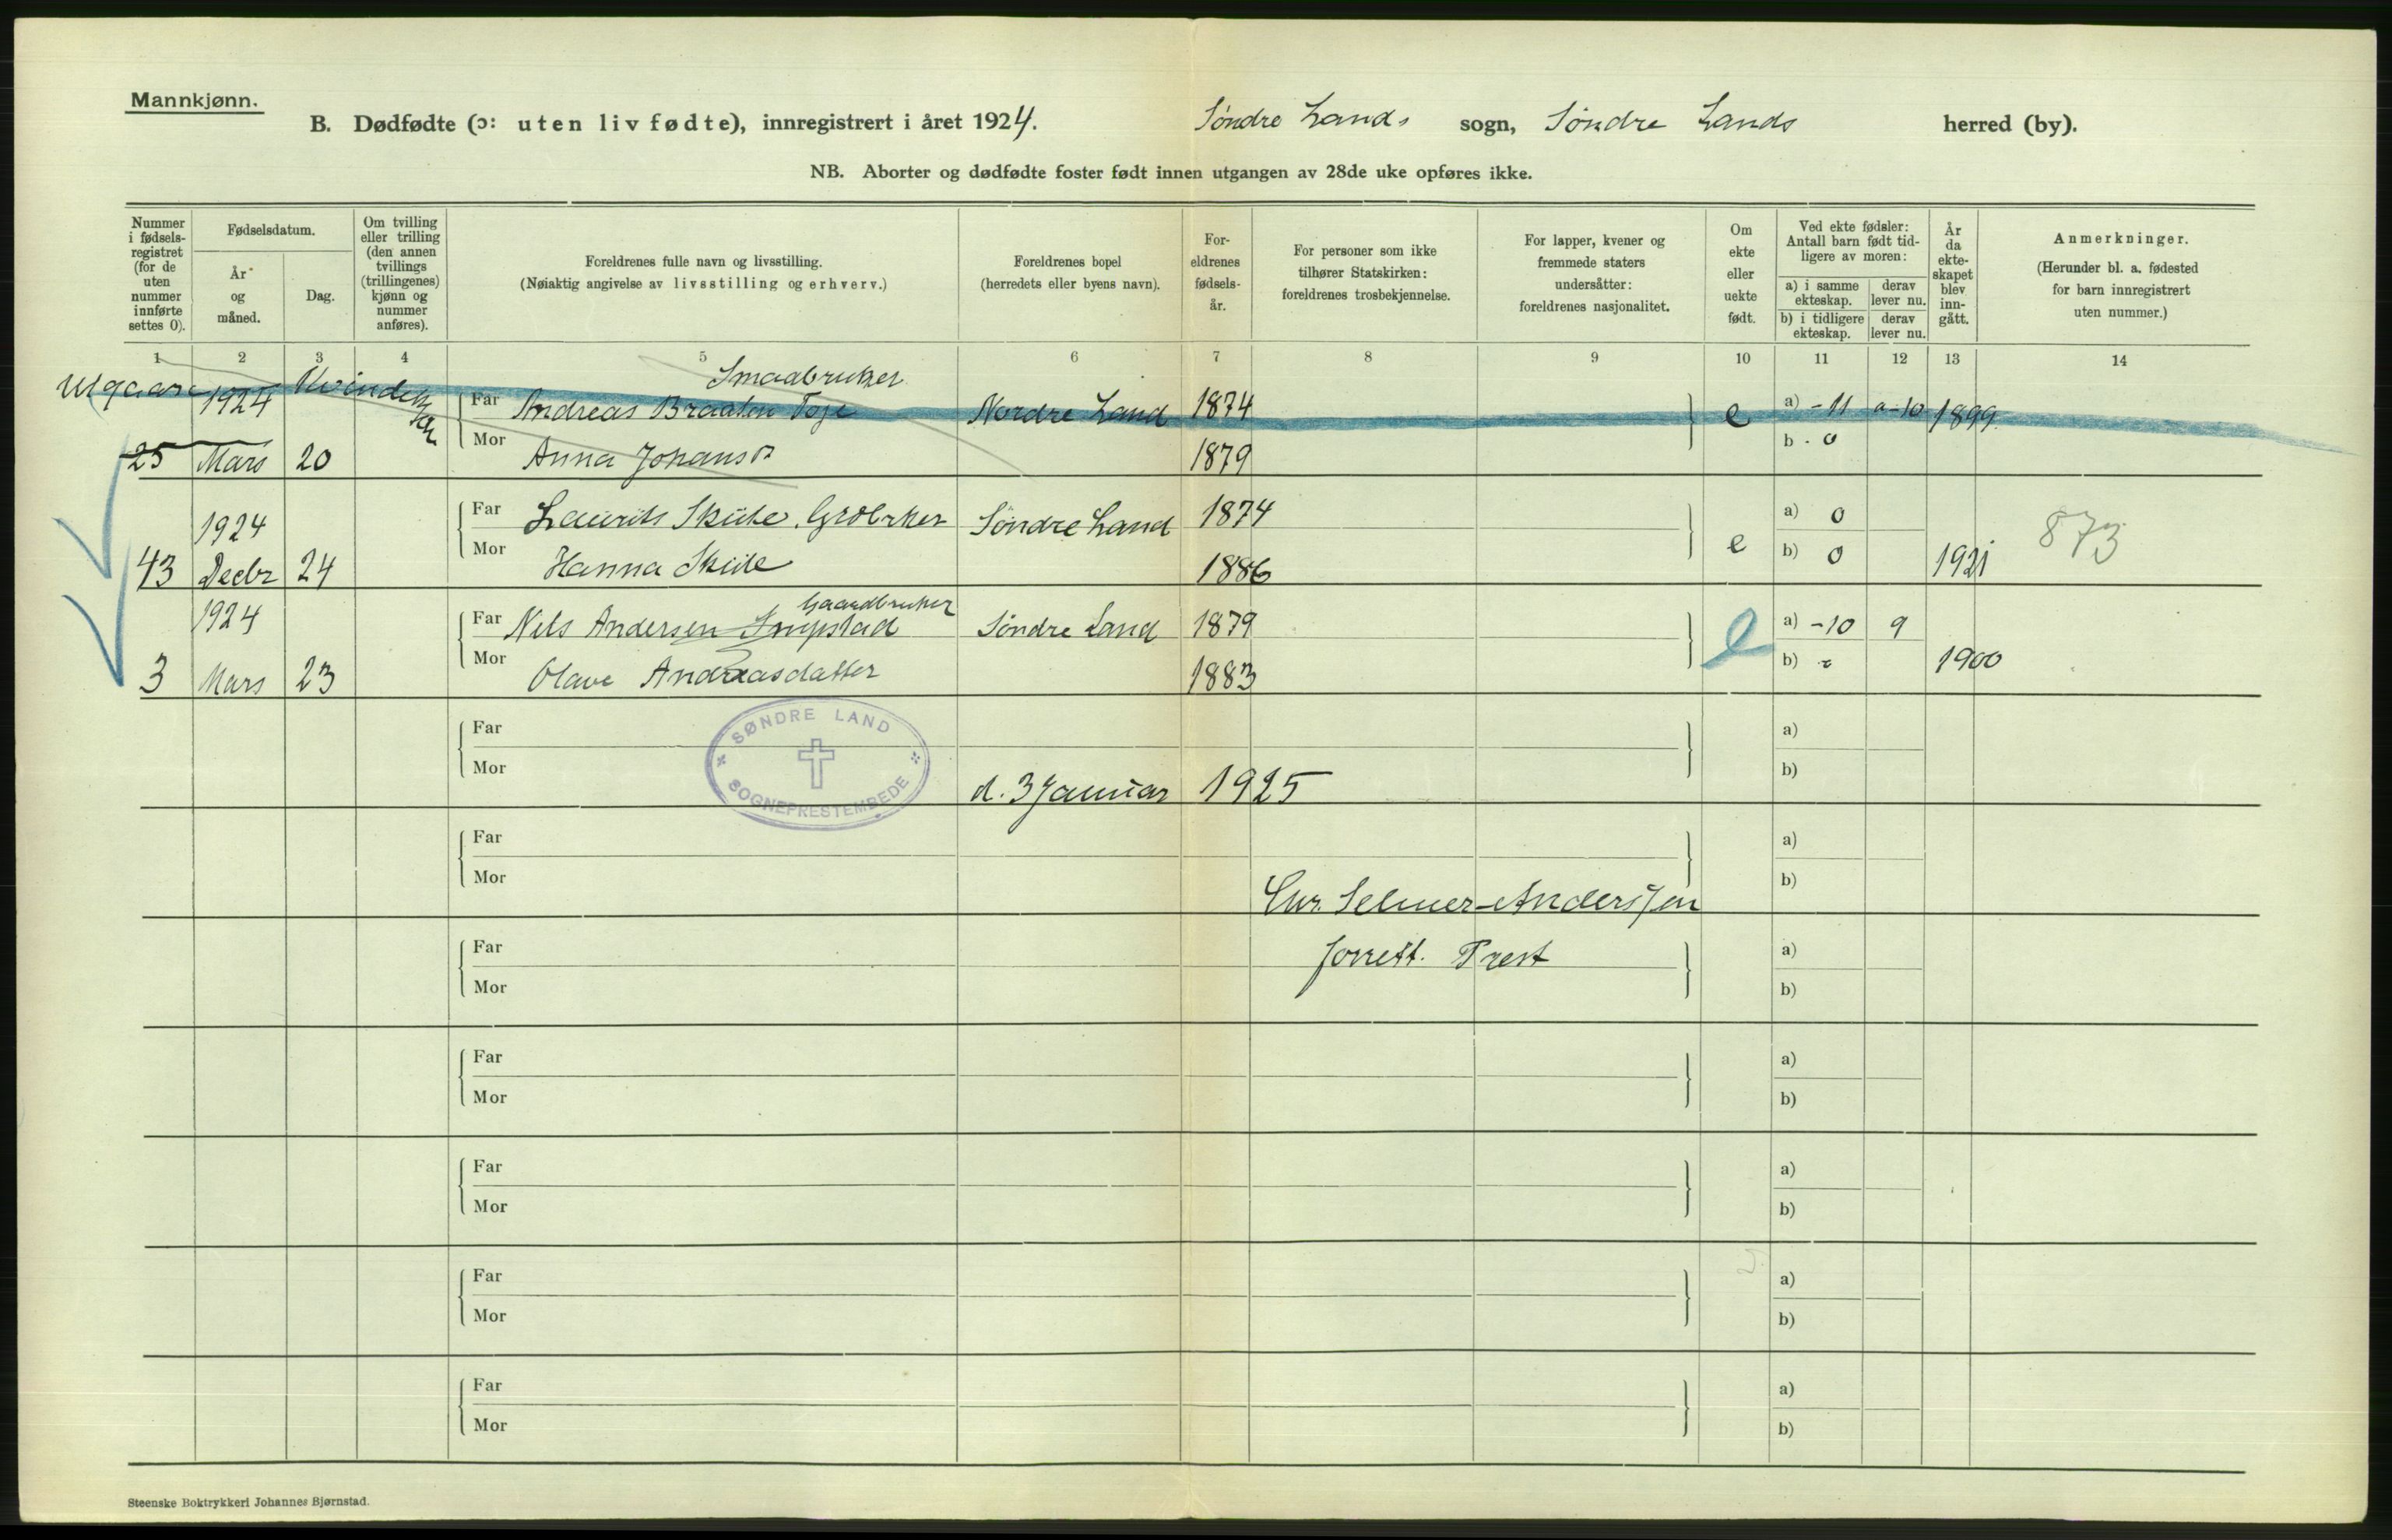 Mannkjønn.
B. Dødfødte (ɔ: uten liv fødte), innregistrert i året 1924. Søndre Lands sogn, Søndre Lands herred (by).
NB. Aborter og dødfødte foster født innen utgangen av 28de uke opføres ikke.
Nummer i fødsels-registret (for de uten nummer innførte settes 0).
Fødselsdatum.
År og måned.
Dag.
Om tvilling eller trilling (den annen tvillings (trillingenes) kjønn og nummer anføres).
Foreldrenes fulle navn og livsstilling.
(Nøiaktig angivelse av livsstilling og erhverv.)
Foreldrenes bopel
(herredets eller byens navn).
For-eldrenes fødsels-år.
For personer som ikke tilhører Statskirken: foreldrenes trosbekjennelse.
For lapper, kvener og fremmede staters undersåtter: foreldrenes nasjonalitet.
Om ekte eller uekte født.
Ved ekte fødsler: Antall barn født tid-ligere av moren:
a) i samme ekteskap.
derav lever nu.
b) i tidligere ekteskap.
derav lever nu.
År da ekte-skapet blev inn-gått.
Anmerkninger.
(Herunder bl. a. fødested for barn innregistrert uten nummer.)
1 2 3 4 5 6 7 8 9 10 11 12 13 14
Utgaar
Smaabruker
1924 Far Andreas Braaten Nordre Land 1874 e a) -11 a-10 1899
25 Mars 20 Mor Anna Johansd 1879 b - 0
1924 Far Laurits Skute, Grdbrker Søndre Land 1874 a) 0 873
43 Decbr 24 Mor Hanna Skute 1886 e b) 0 1921
Gaardbruker
1924 Far Nils Andersen Søndre Land 1879 e a) -10 9
3 Mars 23 Mor Olave Andreasdatter 1883 b) - 1900
SØNDRE LAND
SOGNEPRESTEMBEDE
Far a)
Mor b)
d. 3 Januar 1925
Far a)
Mor b)
Chr. Selmer-Anderssen
Far a)
forrett. Prest
Mor b)
Far a)
Mor b)
Far a)
Mor b)
Far a)
Mor b)
Far a)
Mor b)
Steenske Boktrykkeri Johannes Bjørnstad.